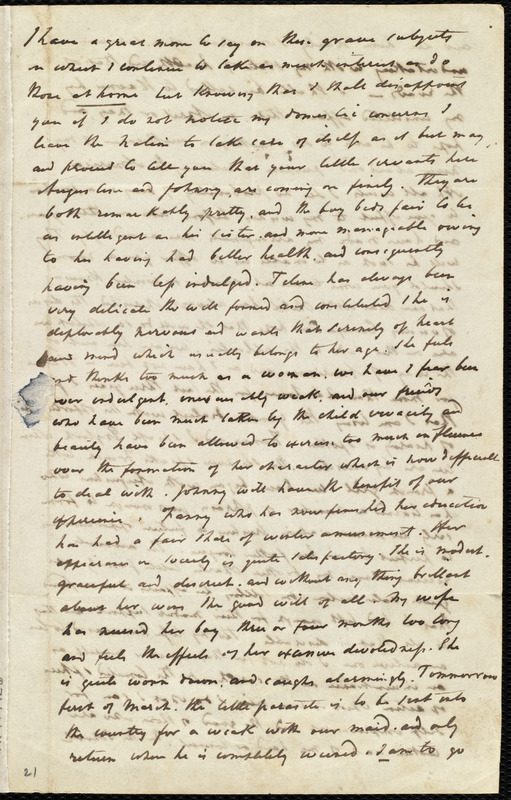 I have a great more to say on these grave subjects
in which I continue to take as much interest as I do
those at home but knowing that I shall disappoint
you if I do not notice my domestic concerns I
leave the nation to take care of itself as it best may,
and proceed to tell you that your little servants here
Angus Lion and Johnny are coming on finely. They are
both remarkably pretty, and the boy bids fair to be
as intelligent as his sister, and more manageable owing
to his having had better health, and consequently
having been less indulged. has always been
very delicate tho well formed and constituted she is
deplorably nervous and wants that serenity of heart
and mind which usually belongs to her age. She feels
and thinks too much as a woman, we have I fear been
over indulgent, inexcusably weak, and our friends
who have been much taken by the child vivacity and
beauty have been allowed to exercise too much influence
over the formation of her character which is now difficult
to deal with. Johnny will have the benefit of our
experience. Fanny who has now finished her education
has had a fair share of winter amusement. Her
appearance in society is quite satisfactory. She is modest,
graceful and discreet, and without any thing brilliant
about her wins the good will of all. My wife
has nursed her boy three or four months too long
and feels the effects of her excessive devotedness. She
is quite worn down, and coughs alarmingly. Tommorrow
first of March, the little parasite is to be sent into
the country for a week with our maid, and only
return when he is completely weaned. I am to go
21